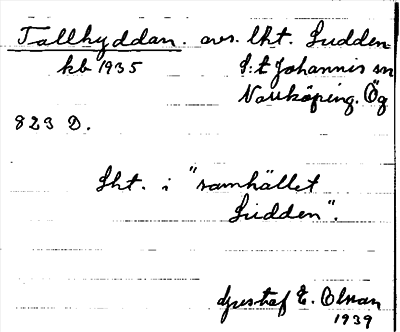 Tallhyddan. avs. lht. Ludden
kb 1935 S:t Johannis sn
Norrköping. Ög
823 D.
Lht. i "samhället
Ludden".
Gustaf E. Olsson
1939